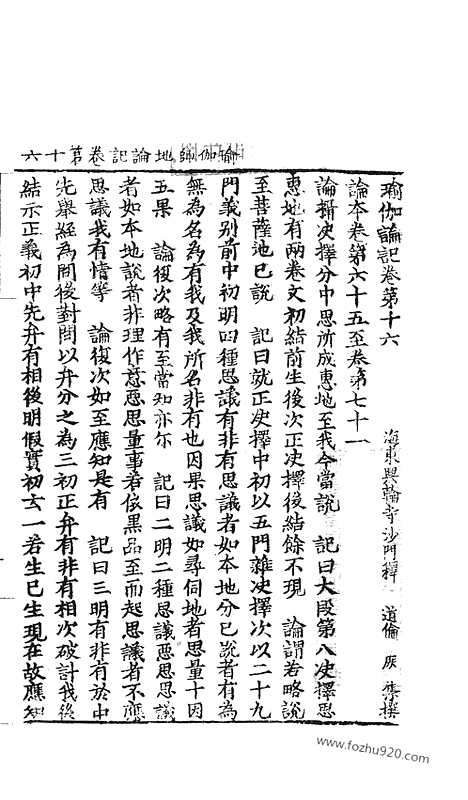 瑜伽師地論記卷第十六
瑜伽論記卷第十六
海東興輪寺沙門釋 道倫 集撰
論本卷第六十五至卷第七十一
論攝決擇分中思所成惠地至我今當說 記曰大段第八決擇思
惠地有兩卷文初結前生後次正決擇後結餘不現 論謂若略說
至菩薩地已說 記曰就正決擇中初以五門雜決擇次以二十九
門義別前中初明四種思議有非有思議者如本地分已說者有為
無為名為有我及我所名非有也因果思議如尋伺地者思量十因
五果 論復次略有至當知亦尒 記曰二明二種思議惡思思議
者如本地說者非理作意惡思量事若依黑品至而起思議者不應
思議我有情等 論復次如至應知是有 記曰三明有非有於中
先舉經為問後對問以弁分之為三初正弁有非有相次破計我後
結示正義初中先弁有相後明假實初云一若生已生現在故應知
www.fozhu920.com